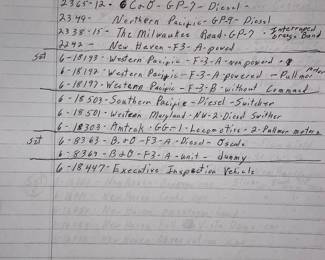 2365-12- C&O-GP-7-Diesel-
2349- Northern Pacific-GP-9-Diesel
2338-15- The Milwaukee Road-GP-7- Interrupted orange Band
2242- New Haven-F-3-A-powered
Set 6-18193-Western Pacific-F-3-A-nonpowered
6-18192-Western Pacific-F-3-A-powered-Pullmor
6-18197-Western Pacific-F-3-B-without Command
6-18503-Southern Pacific-Diesel-Switcher
6-18501-Western Maryland-NW-2-Diesel Swither
6-18303-Amtrak GG-1-Locomotive-2-Pullmor motors
Set 6-8363-B&O-F3-A-Diesel-
6-8364-B&O-F3-A-unit-dummy
6-18447-Executive Inspection Vehicle